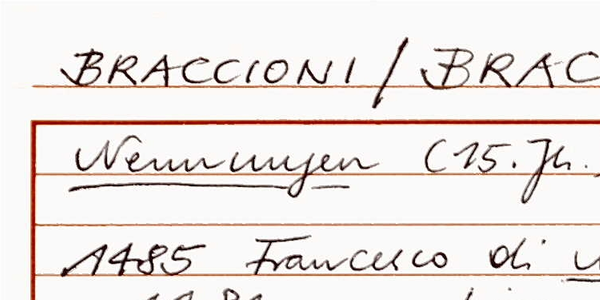 BRACCIONI / BRAC
Nennungen (15. Jh.
1485 Francesco di